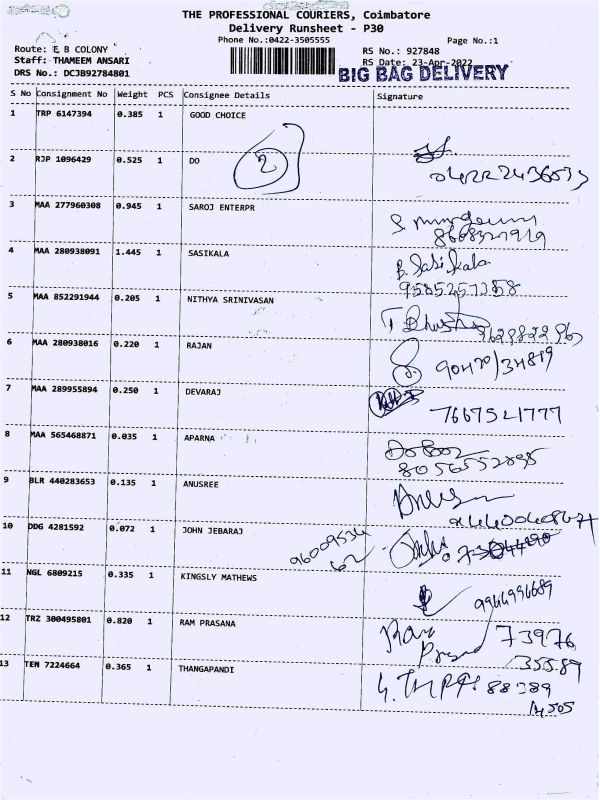 THE PROFESSIONAL COURIERS, Coimbatore
Delivery Runsheet - P30
Phone No.:0422-3505555
Page No.:1
Route: E B COLONY
RS No.: 927848
Staff: THAMEEM ANSARI
RS Date: 23-Apr-2022
DRS No.: DCJB92784801
BIG BAG DELIVERY
S No Consignment No Weight PCS Consignee Details Signature
1 TRP 6147394 0.385 1 GOOD CHOICE
2 RJP 1096429 0.525 1 DO 2
3 MAA 277960308 0.945 1 SAROJ ENTERPR
4 MAA 280938091 1.445 1 SASIKALA B. Sasikala
9585257358
5 MAA 852291944 0.205 1 NITHYA SRINIVASAN
6 MAA 280938016 1.220 1 RAJAN
7 MAA 289955894 0.250 1 DEVARAJ 7667521777
8 MAA 565468871 0.035 1 APARNA
8056552895
9 BLR 440283653 0.135 1 ANUSREE
10 DDG 4281592 0.072 1 JOHN JEBARAJ 9600953462
11 NGL 6809215 0.335 1 KINGSLY MATHEWS 9944994689
12 TRZ 300495801 0.820 1 RAM PRASANA Ram 73976
Prasad 35589
13 TEN 7224664 0.365 1 THANGAPANDI 88389
14505